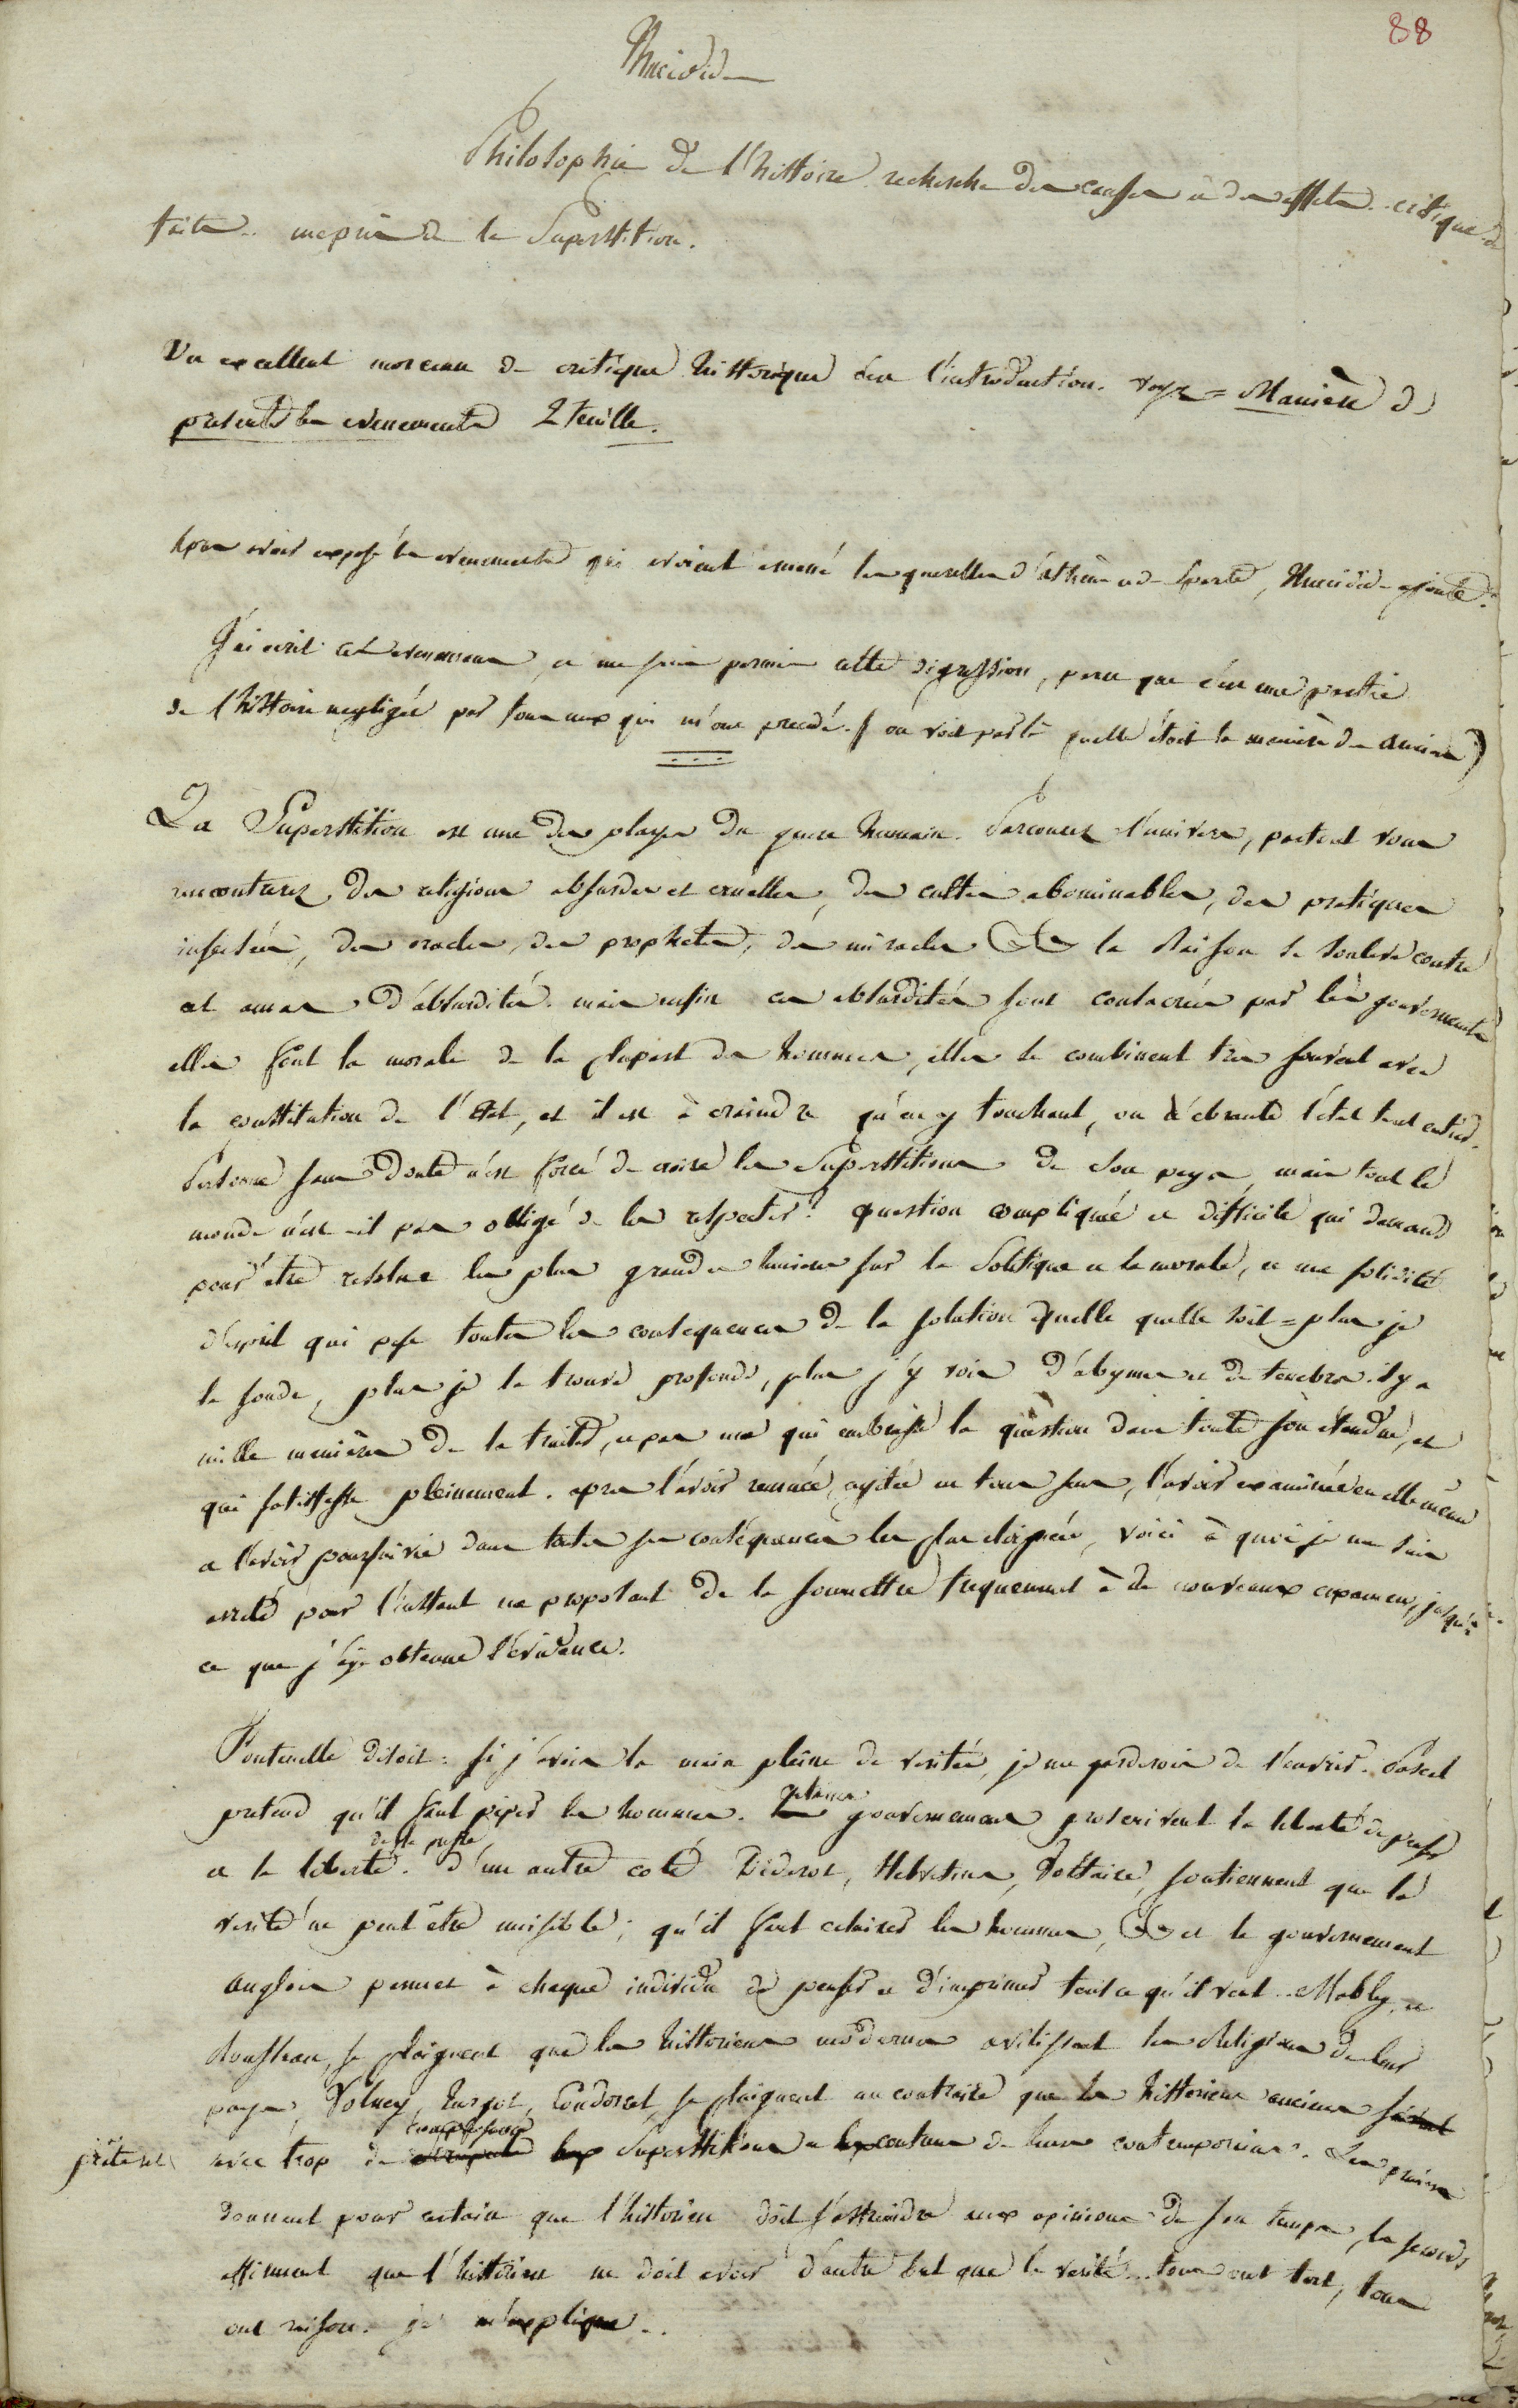 88
Thucidide
Philosophie de l'histoire recherche des causes et des effets. critique de
faits. mepris de la Superstition.
Un excellent morceau de critique historique dans l'introduction. voyez = Manière de
présenter les evenements 2 feuille.
Apres avoir exposé les evenements qui avoient amené les querelles d'athènes et de Sparte, Thucidide ajoute.
J'ai ecrit ces evenemens, et me suis permis cette digression, parce que c'est une partie
de l'histoire negligée par tous ceux qui m'ont precedé. (on voit par là quelle étoit la manière des anciens)
La Superstition est une des playes du genre humain. Parcourez l'univers, partout vous
rencontrerez des religions absurdes et cruelles, des cultes abominables, des pratiques
insensées, des oracles, des prophetes, des miracles &c &c la Raison se souleve contre
cet amas d'absurdités. mais enfin ces absurdités sont consacrées par les gouvernements
elles font la morale de la plupart des hommes, elles se combinent tres souvent avec
la constitution de l'état, et il est à craindre qu'en y touchant, on n'ebranle l'état tout entier.
Personne sans doute n'est forcé de croire les Superstitions de son pays, mais tout le
monde n'est-il pas obligé de les respecter? question compliquée et difficile qui demande
pour être resolue les plus grandes lumieres sur la Politique et la morale, et une solidité
d'esprit qui pese toutes les consequences de la solution quelle quelle soit = plus je
la sonde, plus je la trouve profonde, plus j'y vois d'abymes et de tenebres. il y a
mille manières de la traiter, et pas une qui embrasse la question dans toute son étendue, et
qui satisfasse pleinement. apres l'avoir remuée, agitée en tous sens, l'avoir examinée en elle même
et l'avoir poursuivie dans toutes ses conséquences les plus éloignées, voici à quoi je me suis
arreté pour l'instant me proposant de la soumettre frequemment à de nouveaux examens, jusqu'à
ce que j'aye obtenu l'évidence.
Fontenelle disoit: si j'avois la main pleine de verités, je me garderois de l'ouvrir. Pascal
pretend qu'il faut piper les hommes. certains gouvernemens proscrivent la liberté de penser
et la liberté de la presse. d'un autre coté Diderot, Helvetius, Voltaire, soutiennent que la
verité ne peut être nuisible; qu'il faut eclairer les hommes, &c &c et le gouvernement
anglois permet à chaque individu de penser et d'imprimer tout ce qu'il veut. Mably, et
Rousseau, se plaignent que les historiens modernes avilissent les Religions de leurs
pays, Volney, Turgot, Condorcet, se plaignent au contraire que les historiens anciens
prêtent avec trop de Superstitions et de leurs contemporains. Les premiers
donnent pour certain que l'historien doit s'astreindre aux opinions de son temps, les seconds
affirment que l'historien ne doit avoir d'autre but que la verité. tous ont tort, tous
ont raison. je m'explique.